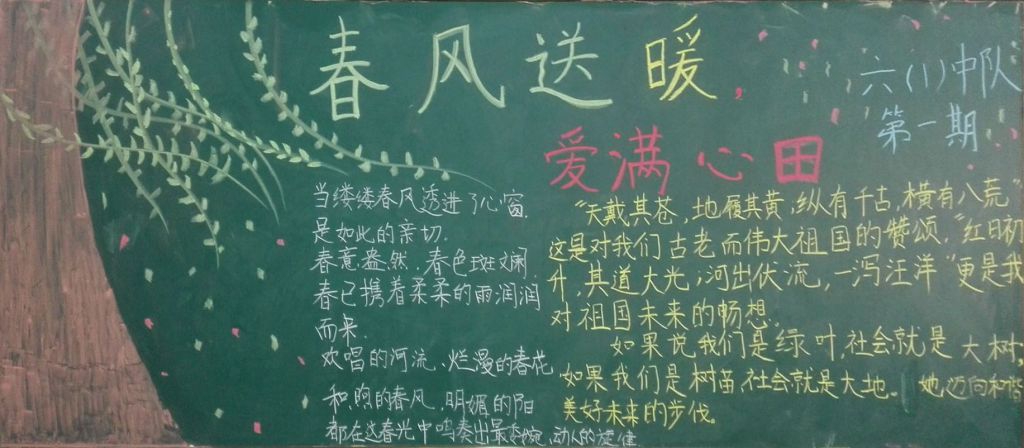 春风送暖,
爱满心田
六(1)中队
第一期
当缕缕春风透进了心窗
是如此的亲切.
春意盎然,春色斑斓
春已携着柔柔的雨润润
而来.
欢唱的河流、烂漫的春花
和煦的春风,明媚的阳
都在这春光中鸣奏出最 动人的旋律
"天戴其苍,地履其黄,纵有千古,横有八荒"
这是对我们古老而伟大祖国的赞颂,"红日初
升,其道大光;河出伏流,一泻汪洋"更是我
对祖国未来的畅想.
如果说我们是绿叶,社会就是大树,
如果我们是树苗,社会就是大地。她迈向和谐
美好未来的步伐。